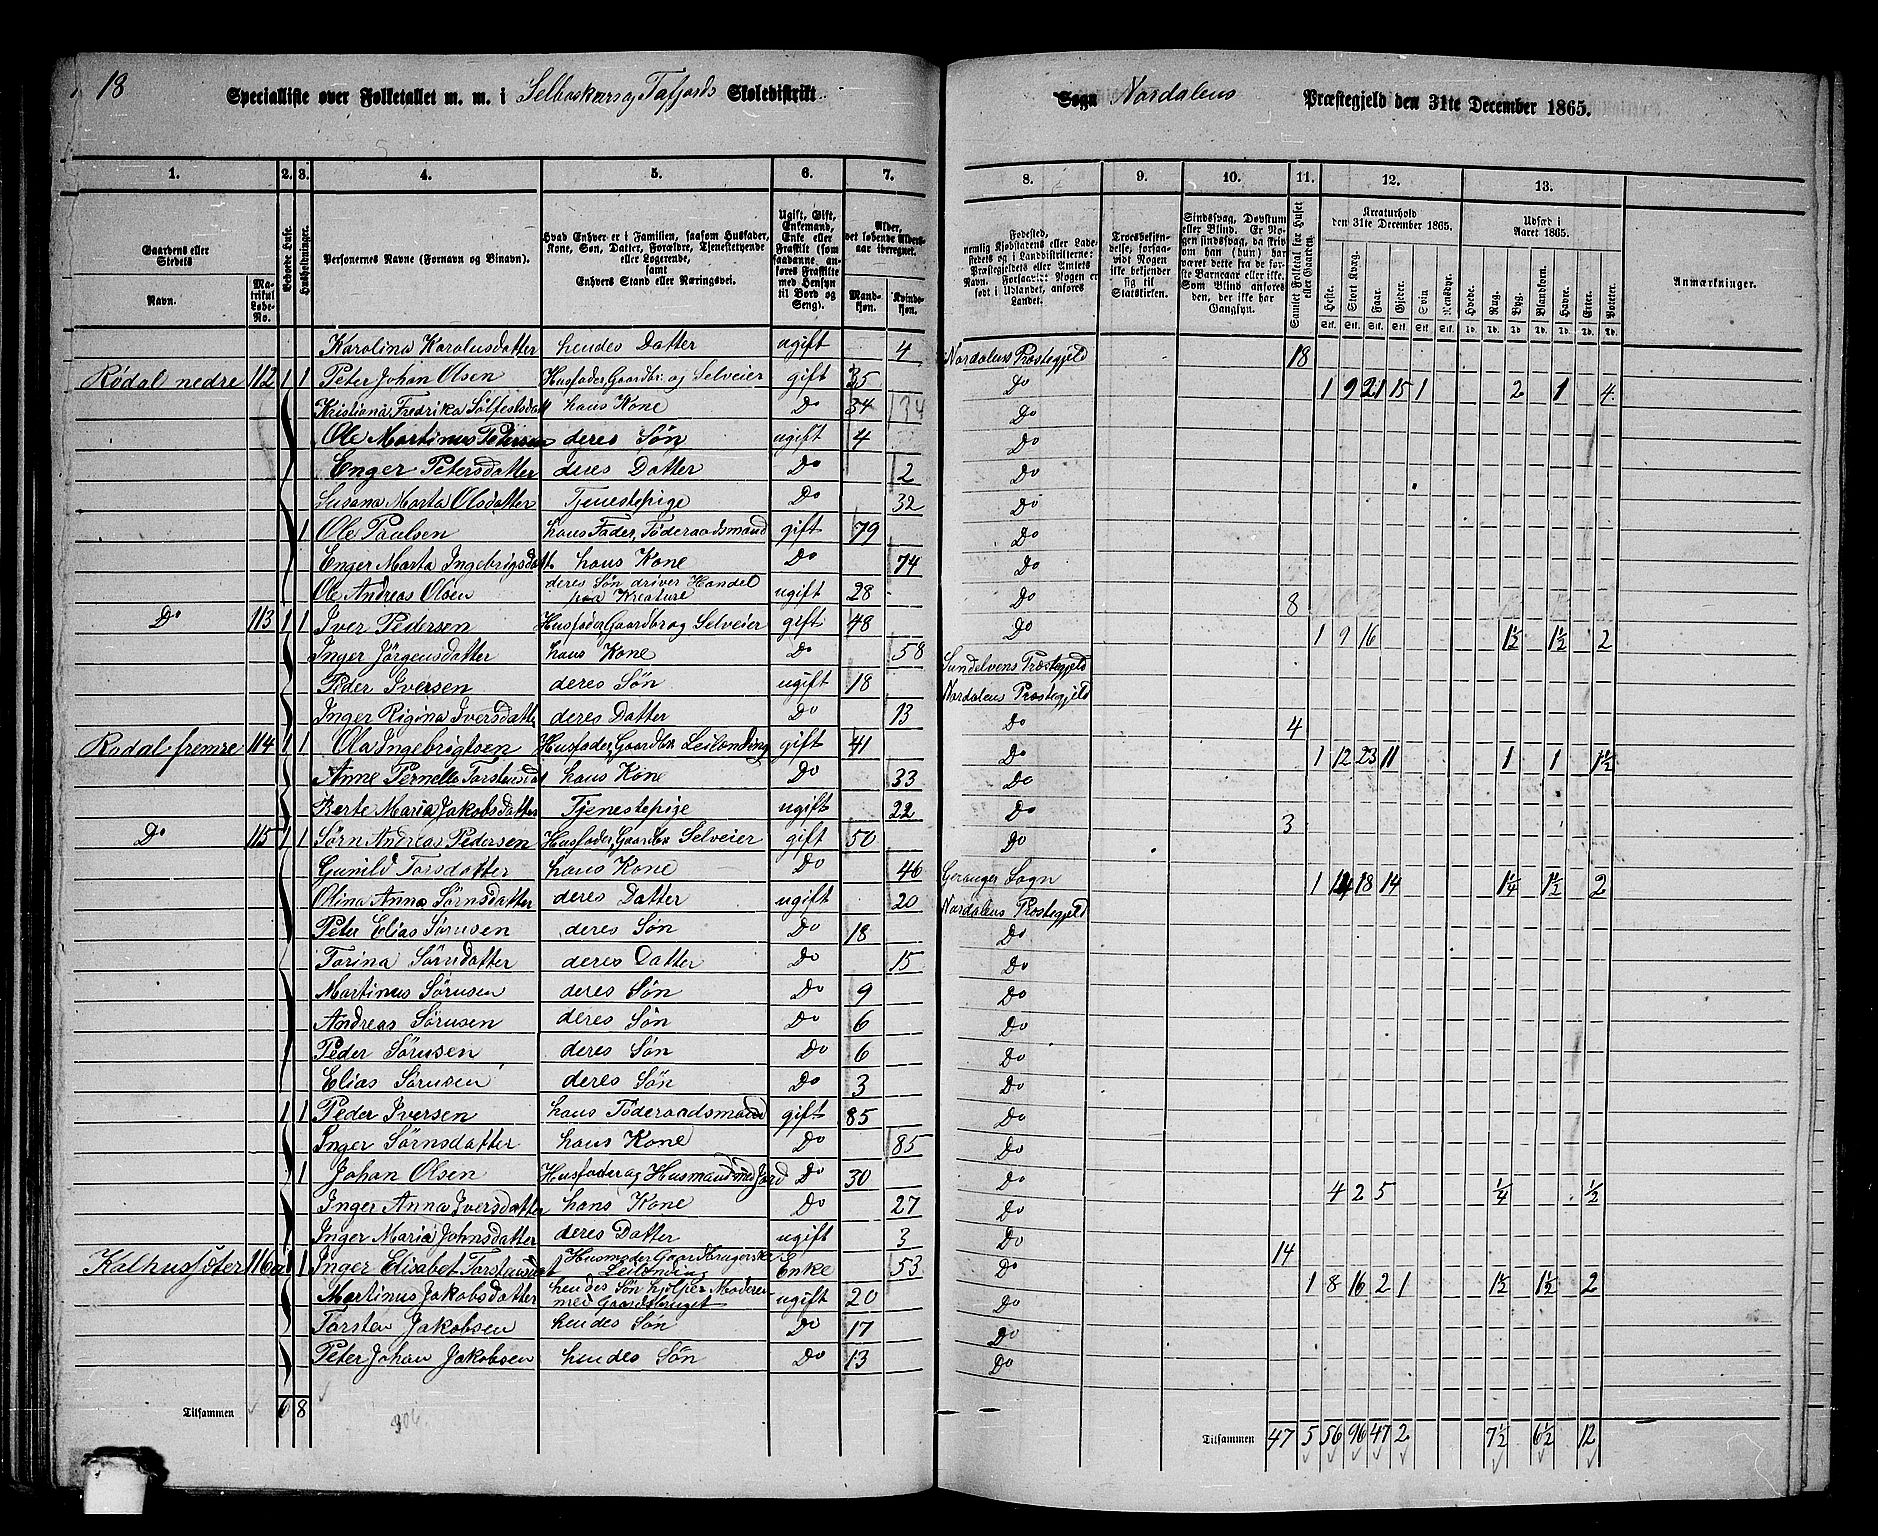 18
Specialliste over Folketallet m. m. i Selboskars og Tafjords Skoledistrikt
Sogn Nordalens Præstegjeld den 31te December 1865.
1. 2. 3. 4. 5. 6. 7. 8. 9. 10. 11. 12. 13.
Gaardens eller Stedets
Navn. Matrikul Løbe-No.
Beboede Huse.
Husholdninger.
Personernes Navne (Fornavn og Binavn).
Hvad Enhver er i Familien, saasom Husfader, Kone, Søn, Datter, Forældre, Tjenestetyende eller Logerende, samt Enhvers Stand eller Næringsvei.
Ugift, Gift, Enkemand, Enke eller Fraskilt (som saadanne anføres Fraskilte med Hensyn til Bord og Seng).
Alder, det løbende Aldersaar iberegnet.
Mandkjøn. Kvindekjøn.
Fødested, nemlig Kjøbstadens eller Ladestedets og i Landdistrikterne: Præstegjeldets eller Amtets Navn. Forsaavidt Nogen er født i Udlandet, anføres Landet.
Troesbekjendelse, forsaavidt Nogen ikke bekjender sig til Statskirken.
Sindssvag, Døvstum eller Blind. Er Nogen sindssvag, da skriv om han (hun) har været dette fra de første Barneaar eller ikke. Som Blind anføres de, der ikke har Gangsyn.
Samlet Folketal for Huset eller Gaarden.
Kreaturhold den 31te December 1865.
Heste. Stort Kvæg. Faar. Gjeder. Svin. Rensdyr.
Udsæd i Aaret 1865.
Hvede. Rug. Byg. Blandkorn. Havre. Erter. Poteter.
Anmærkninger.
Karolina Karolusdatter hendes Datter ugift 4 Nordalens Præstegjeld 18
Rødal nedre 112 1 1 Peter Johan Olsen Husfader, Gaardbr. og Selveier gift 35 Do 1 9 21 15 1 2 1 4
Kristiana Fredrika Sølfestsdatt hans Kone Do 34 34 Do
Ole Martinus Petersen deres Søn ugift 4 Do
Enger Petersdatter deres Datter Do 2 Do
Susana Marta Olsdatter Tjenestepige Do 32 Do
1 Ole Paulsen hans Fader, Føderaadsmand gift 79 Do
Enger Marta Ingebrigsdatt. hans Kone Do 74 Do
Ole Andreas Olsen deres Søn driver Handel paa Kreature ugift 28 Do 8
Do 113 1 1 Iver Pedersen Husfader, Gaardbr og Selveier gift 48 Do 1 9 16 1½ 1½ 2
Inger Jørgensdatter hans Kone Do 58 Sundelvens Præstegjeld
Peder Iversen deres Søn ugift 18 Nordalens Præstegjeld
Inger Rigina Iversdatter deres Datter Do 13 Do 4
Rødal fremre 114 1 1 Ola Ingebrigtsen Husfader, Gaardbr Leilending gift 41 Do 1 12 23 11 1 1 1½
Anne Pernella Torstensdat hans Kone Do 33 Do
Berte Maria Jakobsdatter Tjenestepige ugift 22 Do 3
Do 115 1 1 Sørn Andreas Pedersen Husfader, Gaardbr Selveier gift 50 Do
Gunild Torsdatter hans Kone Do 46 Geranger Sogn 1 14 18 14 1¼ 1½ 2
Olina Anna Sørnsdatter deres Datter ugift 20 Nordalens Præstegjeld
Peter Elias Sørnsen deres Søn Do 18 Do
Torina Sørnsdatter deres Datter Do 15 Do
Martinus Sørnsen deres Søn Do 9 Do
Andreas Sørnsen deres Søn Do 6 Do
Peder Sørnsen deres Søn Do 6 Do
Elias Sørnsen deres Søn Do 3 Do
1 1 Peder Iversen hans Føderaadsmand gift 85 Do
Inger Sørnsdatter hans Kone Do 85 Do
1 Johan Olsen Husfader og Husmand med Jord Do 30 Do 4 2 5 ¼ ½
Inger Anna Iversdatter hans Kone Do 27 Do
Inger Maria Johnsdatter deres Datter ugift 3 Do 14
Kalhussæter 116a 1 1 Inger Elisabet Torstensdat Husmoder Gaardbrugerske Leilending Enke 53 Do 1 8 16 2 1 1½ 1½ 2
Martinus Jakobsdatter hendes Søn hjelper Moderen med Gaardsbruget ugift 20 Do
Torsten Jakobsen hendes Søn Do 17 Do
Peter Johan Jakobsen hendes Søn Do 13 Do
Tilsammen 6 8
306
Tilsammen 47 5 56 96 47 2 7½ 6½ 12